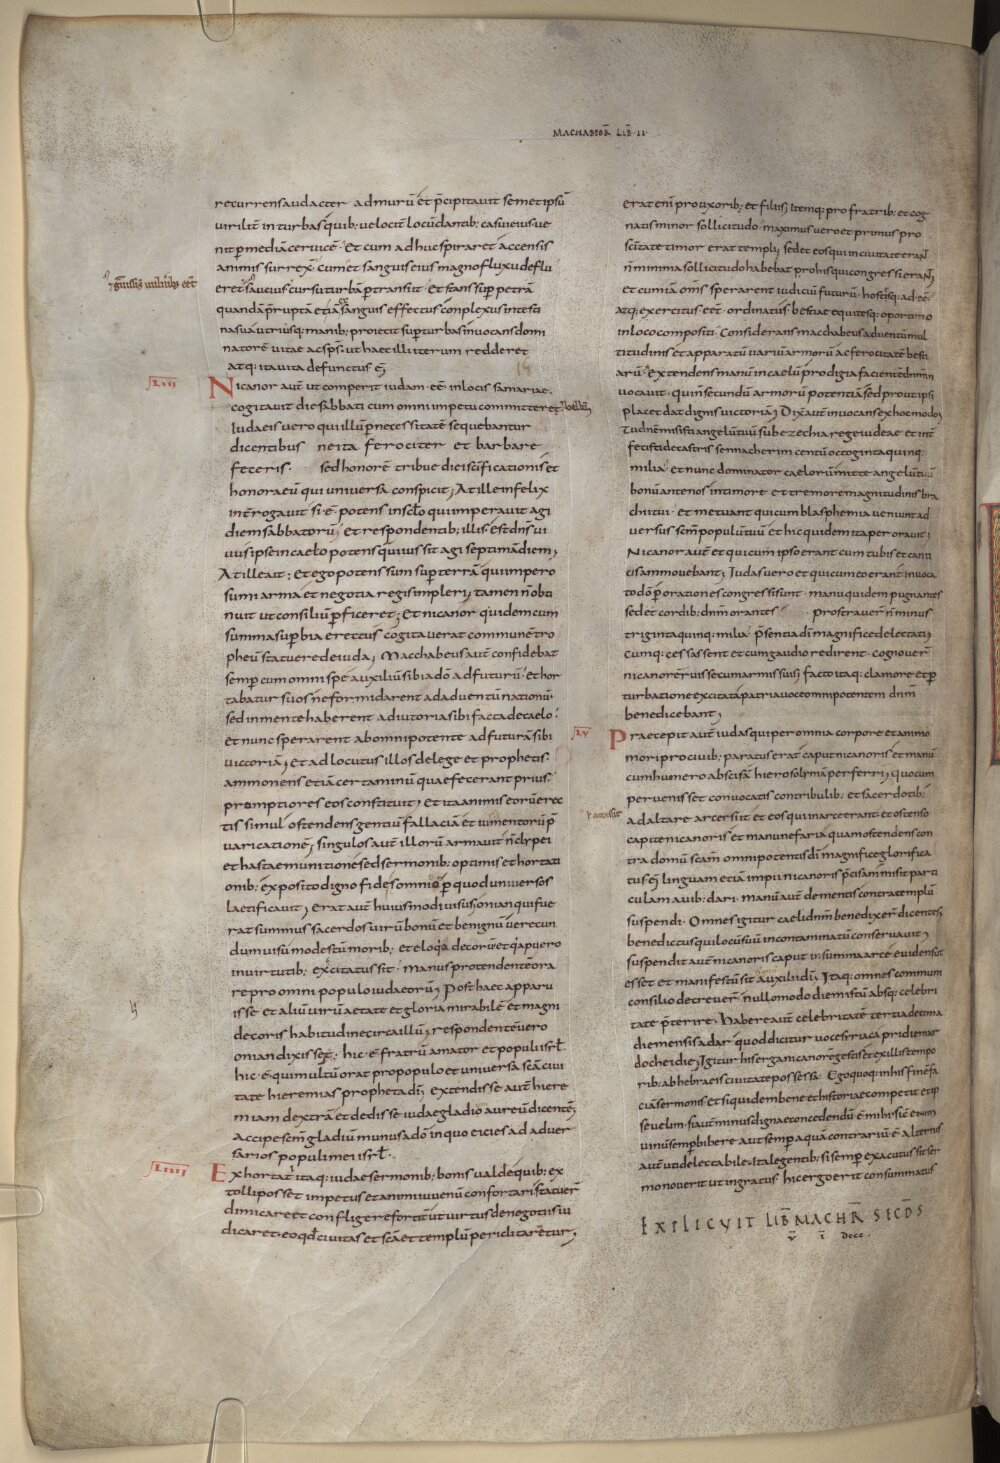 MACHABEOR̄ LIB̄ II
recurrens audacter ad murū et p̄cipitavit semetipsū
virilit̄ in turbas quib; velocit̄ locū dantib; casui eius ve
nit p̄ mediā cervicē · Et cum adhuc spiraret accensis
animis surrex̄ cum et sanguis eius magno fluxu deflu
eret
saucius cursu turbā p̄transiit · Et stans sup̄ petrā
quandā p̄ruptā et iā exsanguis effectus conplexus intesti
na sua utriusq; manib; proiecit sup̄ turbas invocans domi
natorē vitae ac sp̄s; ut haec illi iterum redderet
atq; ita vita defunctus ē;
LIII
Nicanor aut̄ ut comperit iudam · eē in locis samariae ·
cogitavit die sabbati cum omni impetu committere bellū
Iudaeis vero qui illū p̄ necessitatē sequebantur
dicentibus ne ita ferociter et barbare
feceris · sed honorē tribue diei sc̄ificationis et
honora eū qui universa conspicit; At ille infelix
int̄rogavit si ē potens in caelo qui imperavit agi
diem sabbatorū; et respondentib; illis · Est dn̄s vi
vus ipse in caelo potens qui iussit agi septimā diem;
At ille ait; et ego potens sum sup̄ terrā qui impero
sumi arma et negotia regis impleri; tamen n̄ obti
nuit ut consiliū p̄ficeret; Et nicanor quidem cum
summa sup̄bia erectus cogitaverat commune tro
pheū statuere de iuda; Macchabeus aut̄ confidebat
semp̄ cum omni spe auxiliū sibi a dō adfuturū · et hor
tabatur suos ne formidarent ad adventū nationū ·
sed in mente haberent adiutoria sibi facta de caelo ·
et nunc sperarent ab omnipotente adfuturā sibi
victoriā; et adlocutus illos de lege et prophetis ·
ammonens etiā certaminū quae fecerant prius ·
promptiores eos constituit; et ita animis eorū erec
tis simul ostendens gentiū fallaciā et iuramentorū p̄
varicationē; singulos aut̄ illorū armavit n̄ clypei
et hastae munitione sed sermonib; optimis et hortati
onib; exposito digno fide somnio p̄ quod universos
laetificavit; erat aut̄ huiusmodi visus; onian qui fue
rat summus sacerdos virū bonū et benignū verecun
dum visu modestū morib; et eloquio decorū et qui a puero
in virtutib; exercitatus sit · manus protendentē ora
re pro omni populo iudaeorū; Post haec apparu
isse et aliū virū aetate et gloria mirabilē et magni
decoris habitudine circa illū; respondentē vero
onian dixisse; hic · ē · fratrū amator et populi isrl̄ ·
hic · ē · qui multū orat pro populo et universa sc̄a civi
tate hieremias propheta dī; extendisse aut̄ hiere
miam dextrā et dedisse iudae gladiū aureū dicentē;
accipe sc̄m gladiū munus a dō in quo eicies ad adver
sarios populi mei isrl̄ ·
LIIII
Exhortati itaq; iudae sermonib; bonis valde quib; ex
tolli posset impetus et animi iuvenū confortari statuer̄
dimicare et confligere fortit̄ ut virtus de negotiis iu
dicaret · eo qd̄ civitas et sc̄a et templū periclitarētur;
erat eni pro uxorib; et filiis; itemq; pro fratrib; et cog
natis minor sollicitudo · maximus vero et primus pro
sc̄itate timor erat templi; sed et eos qui in civitate erant
n̄ minima sollicitudo habebat pro his qui congressi erant;
et cum iā oms̄ sperarent iudiciū futurū · hostesq; adeē
atq; exercitus eēt · ordinatus bestiae equitesq; oportuno
in loco compositi · Considerans macchabeus adventū mul
titudinis et apparatū variū armorū ac ferocitatē besti
arū · Extendens manū in caelū prodigia facientē dnm̄
vocavit · qui n̄ secundū armorū potentiā sed prout ipsi
placet dat dignis victoriā; Dix̄ aut̄ invocans ex hoc modo;
Tu dn̄e misisti angelū tuū sub ezechia rege iudeae et int̄
fecisti de castris sennacherim centū octoginta quinq;
milia · et nunc dominator caelorū mitte angelū tuū
bonū ante nos in timore et tremore magnitudinis bra
chii tui · et metuant qui cum blasphemia veniunt ad
versus sc̄m populū tuū et hic quidem ita peroravit;
Nicanor aut̄ et qui cum ipso erant cum tubis et canti
cis ammovebant; Iudas vero et qui cum eo erant invoca
to dō p̄ orationes congressi sunt · manu quidem pugnantes
sed et cordib; dnm̄ orantes prostraver̄ n̄ minus
triginta quinq; milia p̄sentia dī magnifice delectati;
Cumq; cessassent et cum gaudio redirent · cognover̄
nicanorē ruisse cum armis suis; facto itaq; clamore et p̄
turbatione excitata patria voce omnipotentem dnm̄
benedicebant;
LV
Praecepit aut̄ iudas qui per omnia corpore et animo
mori pro civib; paratus erat caput nicanoris et manū
cum humero abscisā hierosolymā perferri; quo cum
pervenisset convocatis contribulib; et sacerdotib;
ad altare arcersiit et eos qui in arce erant · et ostenso
capite nicanoris et manu nefaria quam ostendens con
tra domū sc̄am omnipotentis dī magnifice glorifica
tus · ē; linguam etiā impii nicanoris p̄cisam iussit parti
culam avib; dari · manū aut̄ dementis contra templū
suspendi · Omnes igitur caeli dnm̄ benedixer̄ dicentes;
benedictus qui locū suū incontaminatū conservavit;
suspendit aut̄ nicanoris caput in summa arce evidens ut
esset et manifestū sit auxiliū dī; Itaq; omnes communi
consilio decrever̄ nullo modo diem istū absq; celebri
tate p̄terire; habere aut̄ celebritatē tertia decima
die mensis adar quod dicitur voce syriaca pridie mar
dochei die; Igitur his erga nicanorē gestis et ex illis tempo
rib; ab hebraeis civitate possessa · Ego quoq; in his finē fa
ciā sermonis et siquidem bene et historiae competit et ip
se velim · si aut̄ minus digne concedendū ē mihi · sic enim
vinū semp̄ bibere aut semp̄ aquā contrariū ē · alternis
aut̄ uti delectabile · ita legentib; si semp̄ exactus sit ser
mo non erit ut ingratus hic ergo erit consummatus
EXPLICVIT LIB̄ MACHR̄ SECDS
V̄ Ī Dccc ·